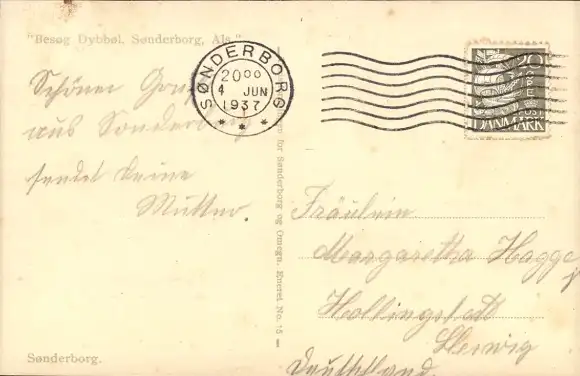 "Besøg Dybbøl, Sønderborg, Als."
SØNDERBORG
20⁰⁰
4 JUN
1937
* * *
20
ØRE
POST
DANMARK
Schöner
aus Sonderburg
sendet deine
Mutter.
for Sønderborg og Omegn. Eneret. No. 15
Fräulein
Margaretha Hagge
Hollingstedt
Sleswig
Deutschland.
Sønderborg.